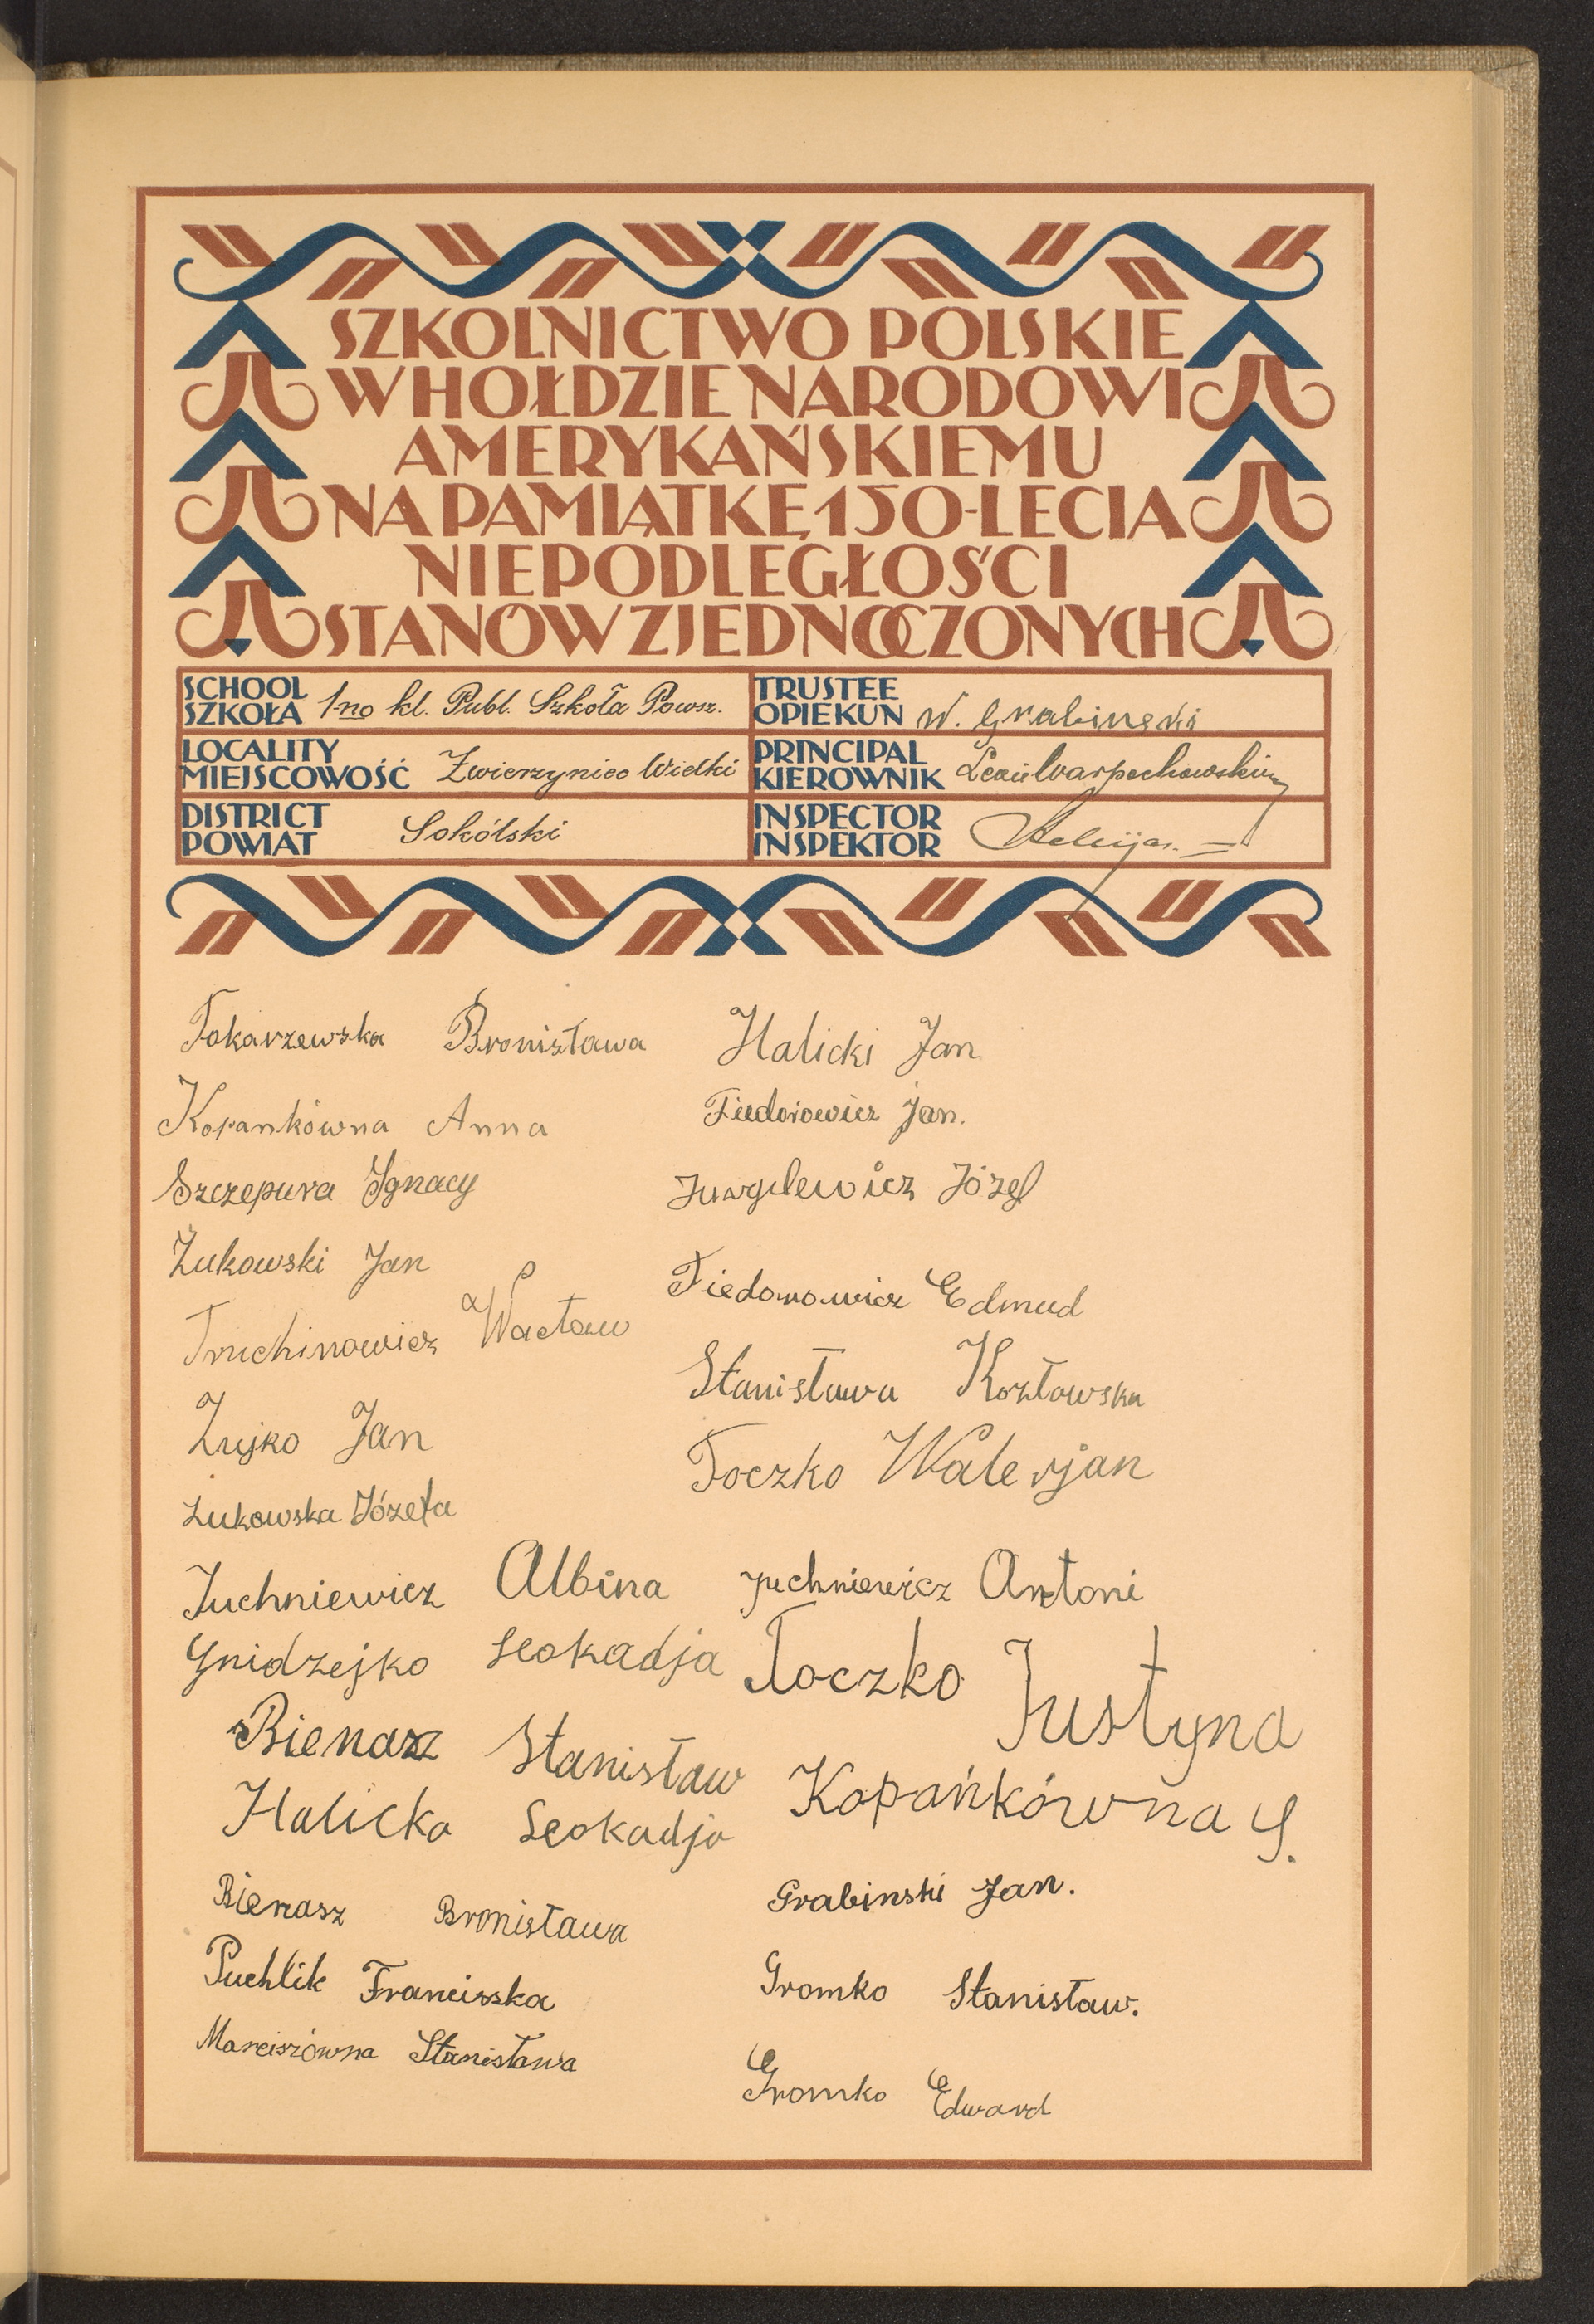 SZKOLNICTWO POLSKIE
W HOŁDZIE NARODOWI
AMERYKAŃSKIEMU
NA PAMIĄTKĘ 150-LECIA
NIEPODLEGŁOŚCI
STANÓW ZJEDNOCZONYCH
SCHOOL
SZKOŁA 1-no kl. Publ. Szkoła Powsz.
TRUSTEE
OPIEKUN W. Grabinski
LOCALITY
MIEJSCOWOŚĆ Zwierzyniec Wielki
PRINCIPAL
KIEROWNIK
DISTRICT
POWIAT Sokólski
INSPECTOR
INSPEKTOR
Tokarzewska Bronisława
Kopankówna Anna
Szczepura Ignacy
Żukowski Jan
Truchinowicz Wacław
Zujko Jan
Żukowska Józefa
Juchniewicz Albina
Gnidzejko Leokadja
Bienasz Stanisław
Halicka Leokadja
Bienasz Bronisława
Puchlik Franciszka
Marciszówna Stanisława
Halicki Jan
Fiedorowicz Jan.
Jurgilewicz Józef
Fiedorowicz Edmud
Stanisława Kozłowska
Toczko Walerjan
Juchniewicz Antoni
Toczko Justyna
Kopańkówna J.
Grabinski Jan.
Gromko Stanisław.
Gromko Edward